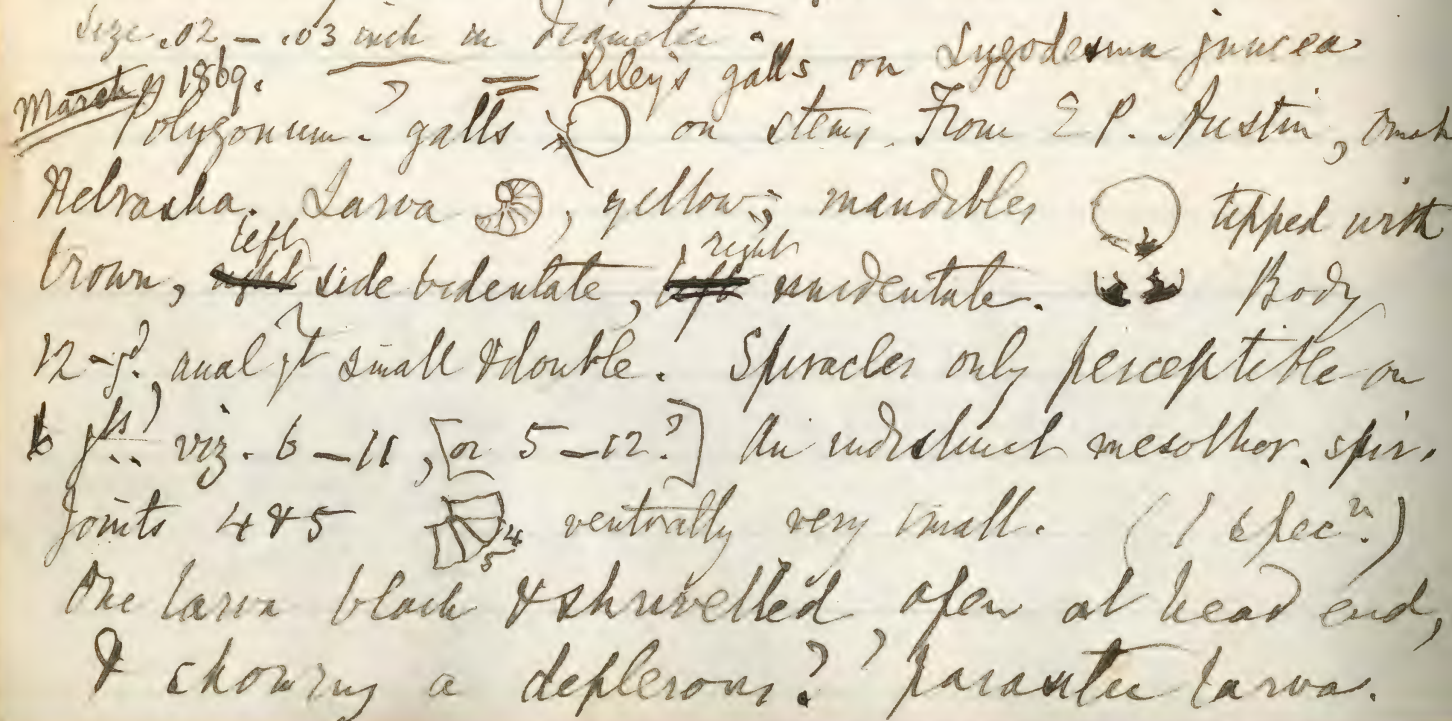 size .02 – .03 inch in diameter.
= Riley's galls on Lygodesma juncea
March 1869.
Polygonum? galls on stems. From E P. Austin, Omah
Nebraska. Larva, yellow; mandibles tipped with
brown, right left side bidentate, left right unidentate. Body
12-jd., anal jt small & double. Spiracles only perceptible on
6 jts) viz. 6–11, [or 5–12?] An indistinct mesothor. spir.
Joints 4 & 5 4 5 ventrally very small. (1 specn.)
One larva black & shrivelled, open at head end,
& showing a dipterous? parasitic larva.